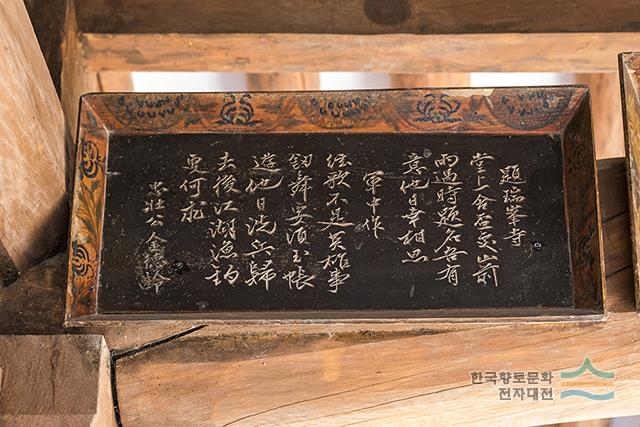 題瑞峯寺
堂上含盃交山前
雨過時題名各有
意他日幸相思
軍中作
絃歌不是英雄事
釰舞要須玉帳
遊他日洗兵歸
去後江湖漁釣
更何求
忠壯公金德齡
한국향토문화
전자대전